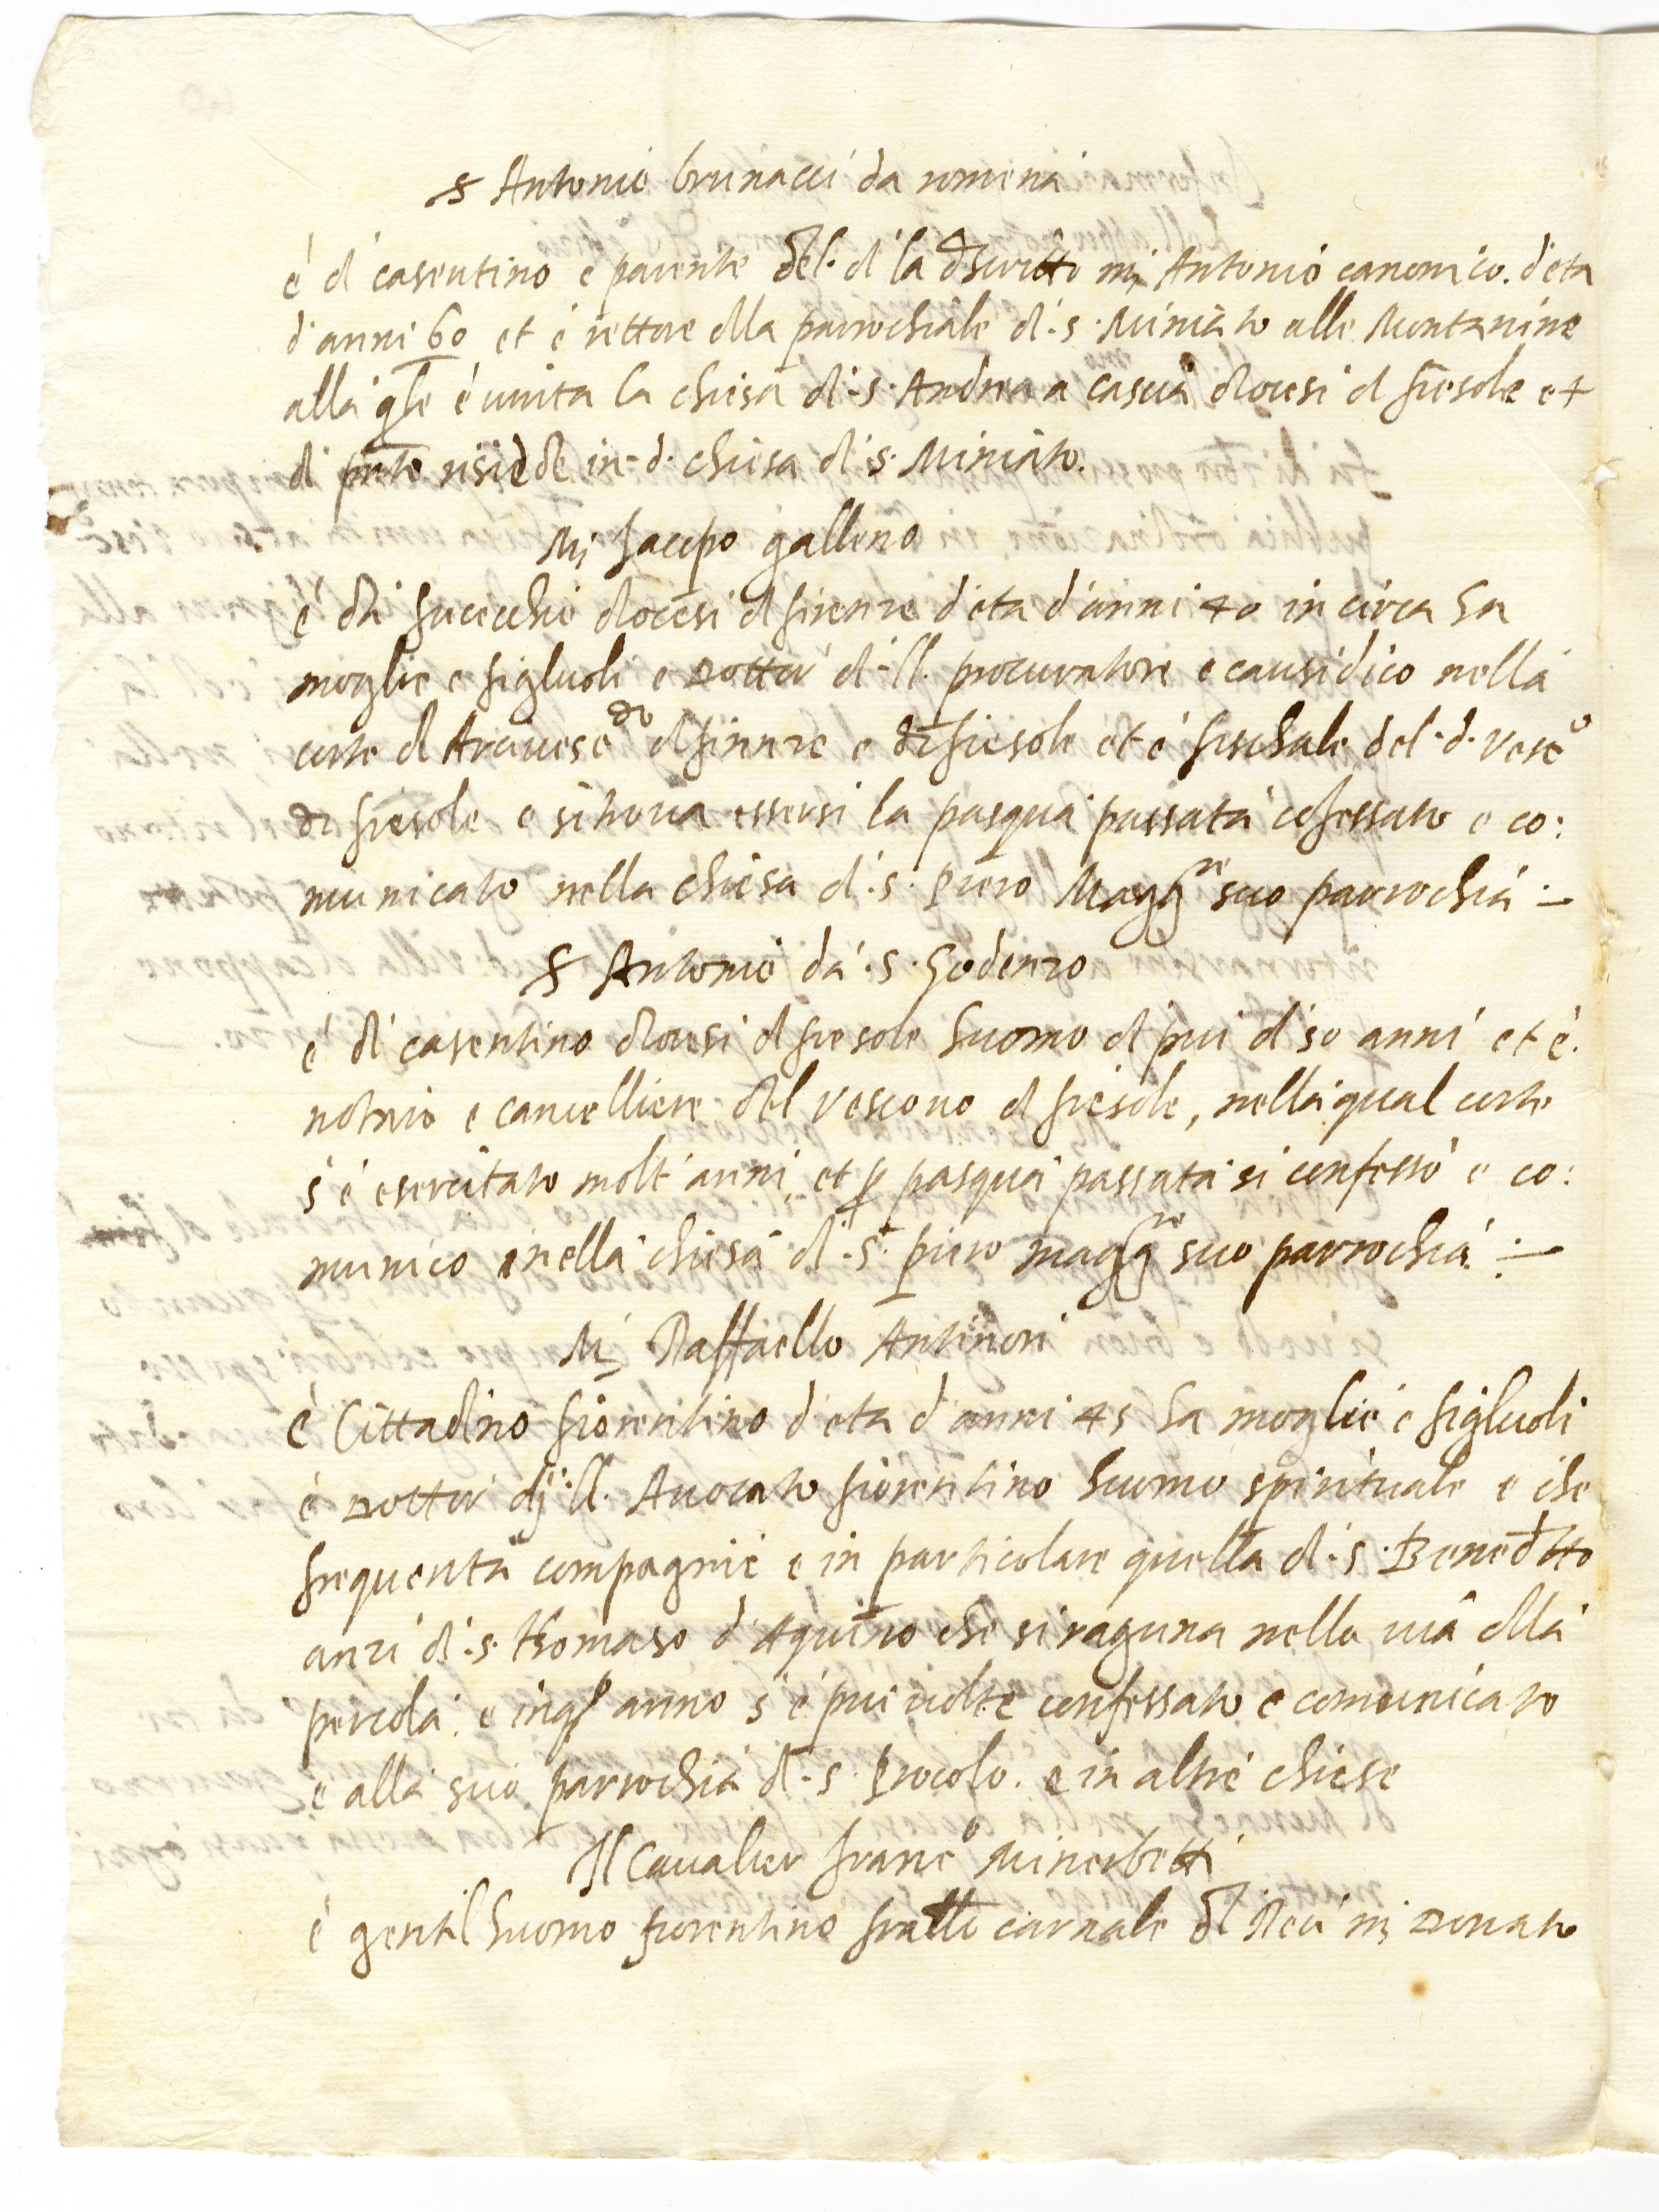 s Antonio brunacci da romena
è di casentino e parente del. di la dscritto mi Antonio canonico. d'eta
d'anni 60 et è rettore dlla parrochiale di .s. Miniato alle Montanine
alla qle è unita la chiesa di .s. Andrea a cascia diocesi di fiesole et
di pnte risiede in d. chiesa di s. Miniato.
Mi Jacopo galleno
è da fucecchio diocesi di firenze d'eta d'anni 40 in circa ha
moglie e figluoli e Dottor di .ll. procuratore e causidico nella
corte dl Arciuesc do di firenze e di fiesole et è fischale del .d. vesc o
di fiesole e si troua essersi la pasqua passata cofessato e co:
municato nella chiesa di .s. piero Magg re suo parrochia
s Antonio da .s. Godenzo
è di casentino diocesi di fiesole huomo di piu di 50 anni et è
notario e cancelliere del vescouo di fiesole, nella qual corte
s'è esercitato molt'anni, et p pasqua passata si confessò e co:
munico nella chiesa di .s. piero magg re suo parrochia
Mi Raffaello Antinori
è Cittadino fiorentino d'eta d'anni 45 ha moglie e figluoli
è Dottor di .ll. Auocato fiorentino huomo spirituale e che
frequenta compagnie e in particolare quella di .s. Benedtto
anzi di .s. Thomaso d'Aquino che si raguna nella uia dlla
pergola. e in qo anno s'è piu uolte confessato e comunicato
e alla suo parrochia di .s. Procolo. e in altre chiese
Il Caualier franc o Minerbetti
è gentilhuomo fiorentino fratllo carnale dl Reu mi Donato